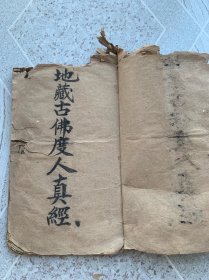 地藏古佛度人真經